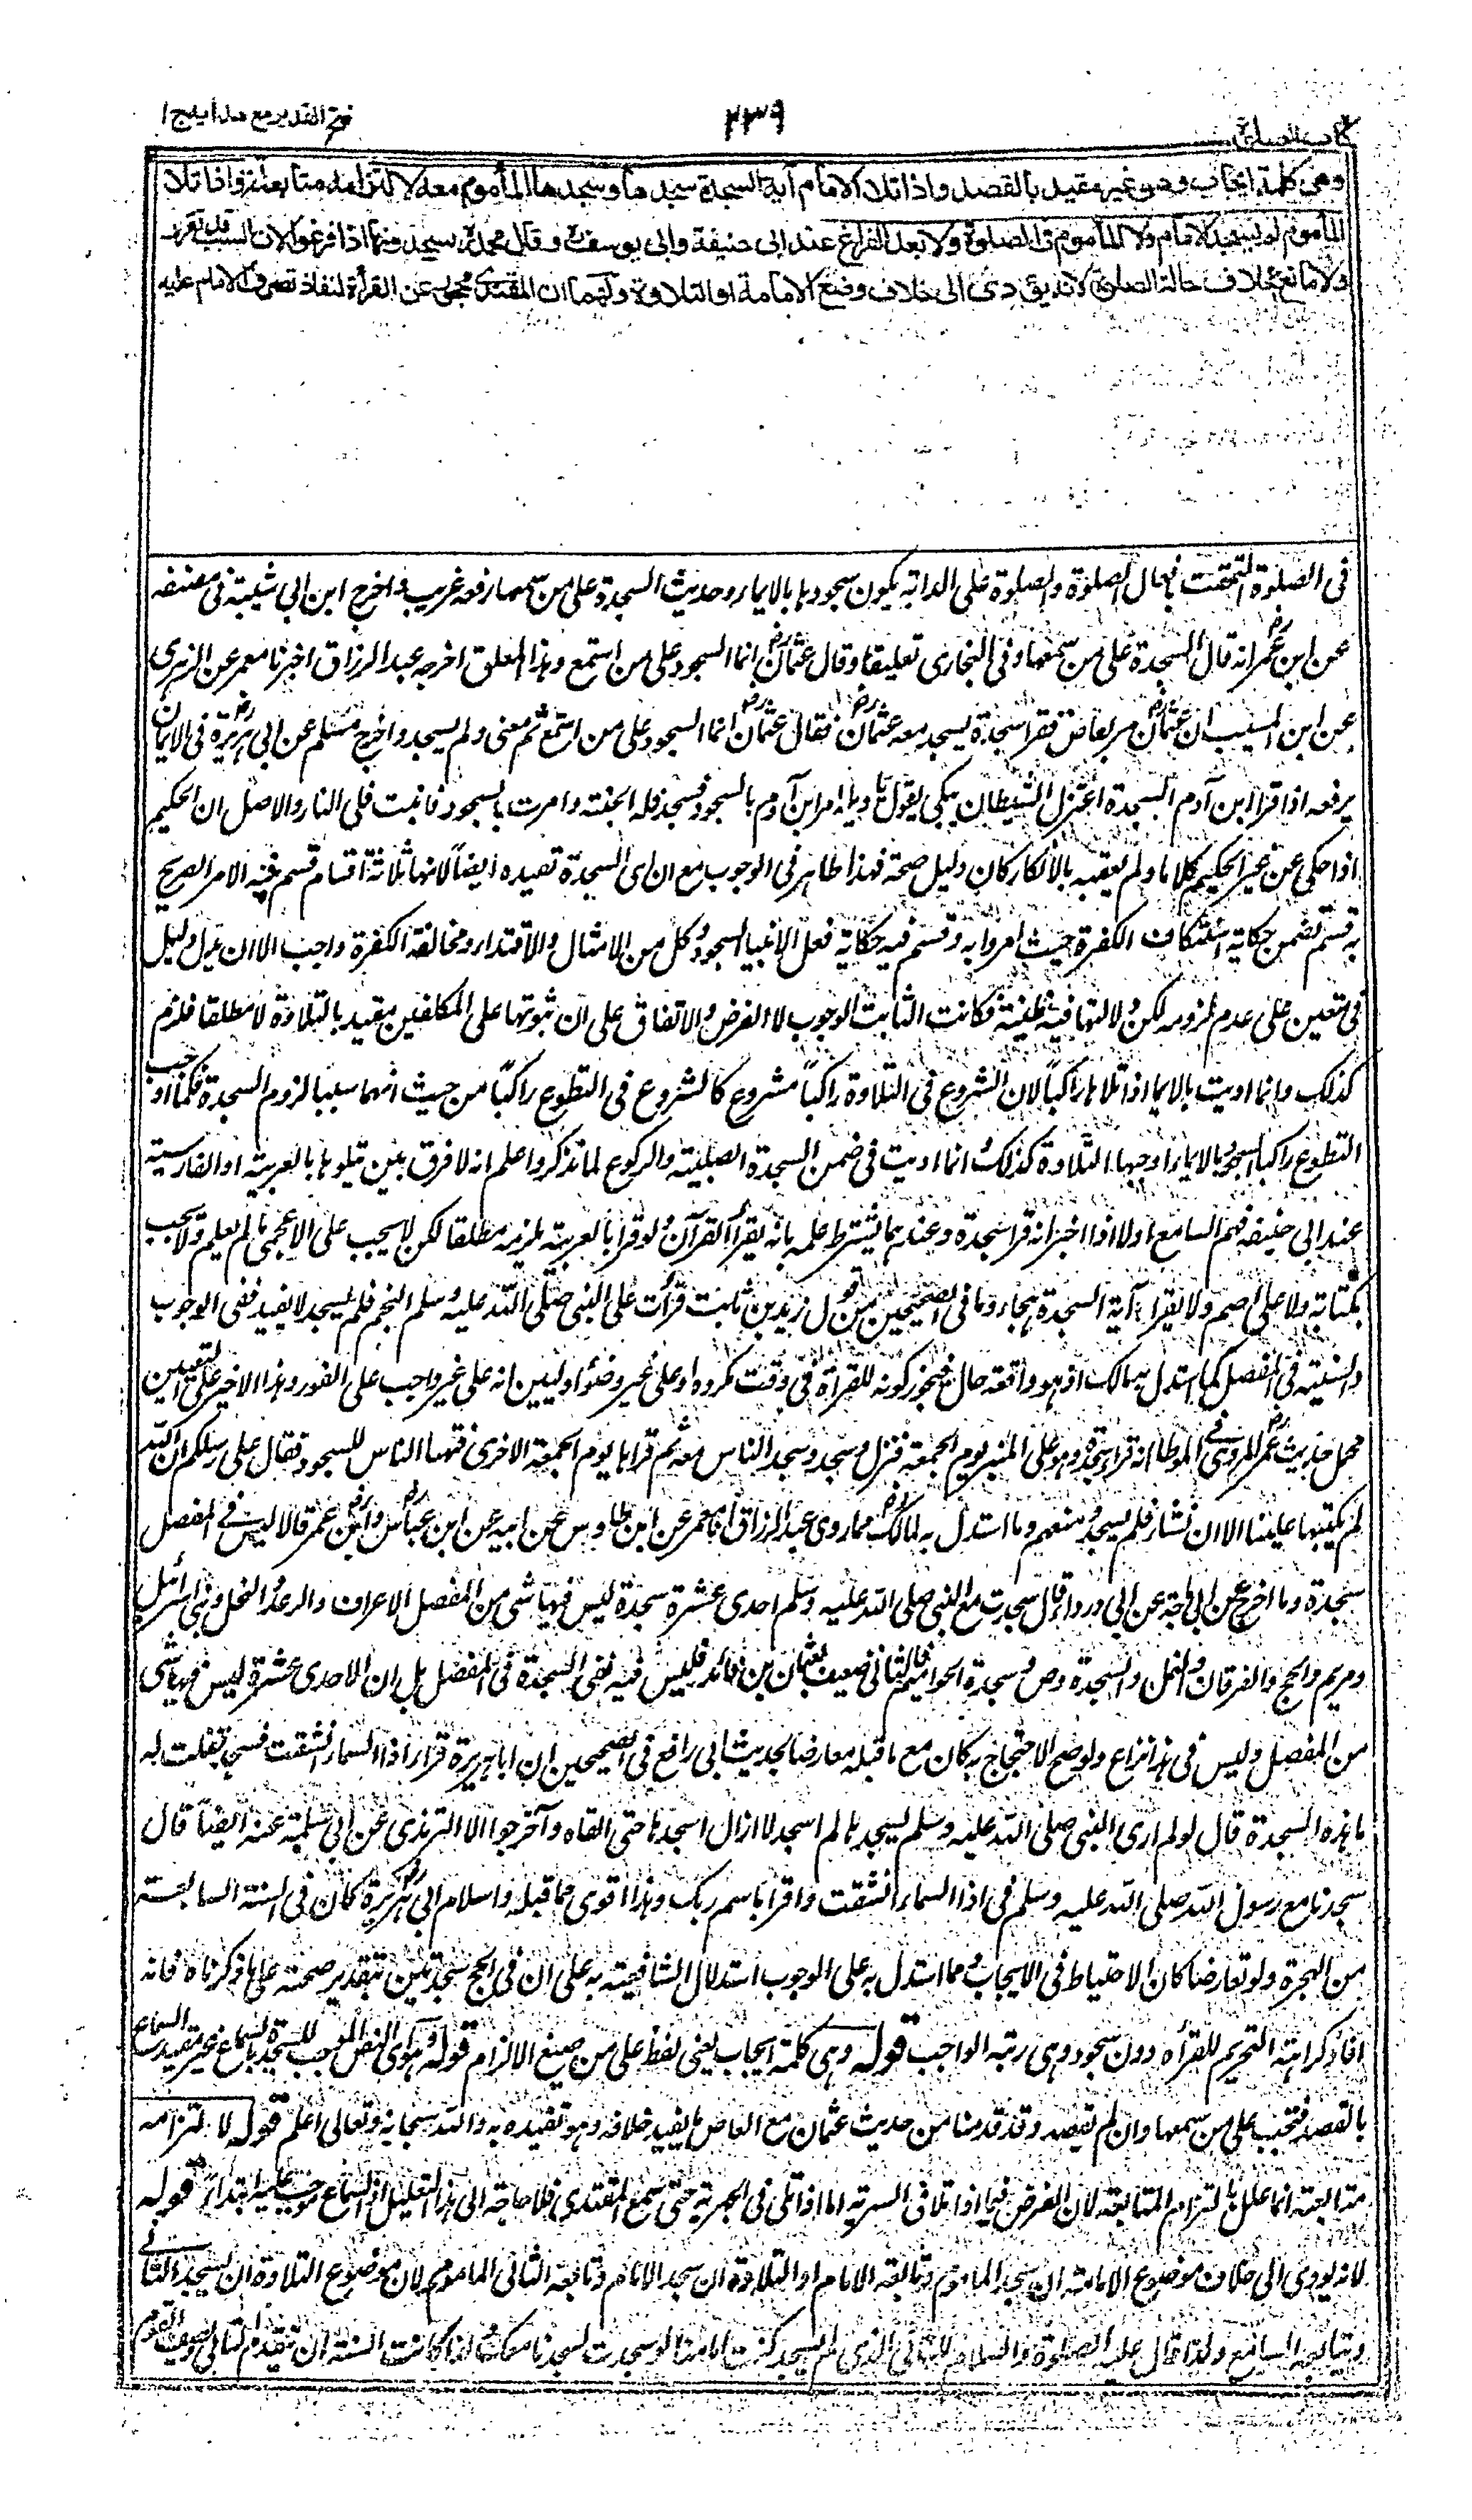 كتاب الصلوة
٢٣٩
فتح القدير مع هدايه ج ١
وهى كلمة ايجاب وهو غير مقيد بالقصد واذا تلا الامام آية السجدة سجدها وسجدها المأموم معه لالتزامه متابعته واذا تلا
المأموم لم يسجد الامام ولا المأموم فى الصلوة ولا بعد الفراغ عند ابى حنيفة وابى يوسف وقال محمد يسجدونها اذا فرغوا لان السبب قد تقرر
ولا مانع بخلاف حالة الصلوة لانه يؤدى الى خلاف وضع الامامة او التلاوة ولهما ان المقتدى محجور عن القرأة لنفاذ تصرف الامام عليه
فى الصلوة التحقت بافعال الصلوة والصلوة على الدابة يكون سجودها بالايماء وحديث السجدة على من سمعها رفعه غريب واخرج ابن ابى شيبة فى مصنفه
عن ابن عمر انه قال السجدة على من سمعها وفى البخارى تعليقا وقال عثمان انما السجود على من استمع وهذا المعلق اخرجه عبد الرزاق اخبرنا معمر عن الزهرى
عن ابن المسيب ان عثمان مر بقاص فقرأ سجدة ليسجد معه عثمان فقال عثمان انما السجود على من استمع ثم مضى ولم يسجد واخرج مسلم عن ابى هريرة فى الايمان
يرفعه اذا قرأ ابن آدم السجدة اعتزل الشيطان يبكى يقول يا ويله امر ابن آدم بالسجود فسجد فله الجنة وامرت بالسجود فابيت فلى النار والاصل ان الحكيم
اذا حكى عن غير الحكيم كلاما ولم يعقبه بالانكار كان دليل صحته فهذا ظاهر فى الوجوب مع ان آى السجدة تفيده ايضاً لانها ثلاثة اقسام قسم فيه الامر الصريح
به وقسم تضمن حكاية استنكاف الكفرة حيث امروا به وقسم فيه حكاية فعل الانبياء السجود وكل من الامتثال والاقتداء ومخالفة الكفرة واجب الا ان يدل دليل
فى معين على عدم لزومه لكن دلالتها فيه ظنية فكانت الثابت الوجوب لا الفرض والاتفاق على ان ثبوتها على المكلفين مقيد بالتلاوة لا مطلقا فلزم
كذلك وانما اديت بالايماء اذا تلاها راكباً لان الشروع فى التلاوة راكباً مشروع كالشروع فى التطوع راكباً من حيث انهما سببا لزوم السجدة فكما اوجب
التطوع راكبا السجود بالايماء اوجبها التلاوة كذلك وانما اديت فى ضمن السجدة الصلبية والركوع لما نذكر واعلم انه لا فرق بين تلوها بالعربية او الفارسية
عند ابى حنيفة فهم السامع اولا اذا اخبر انه قرأ سجدة وعندهما يشترط علمه بانه يقرأ القرآن ولو قرأ بالعربية يلزمه مطلقا لكن لا يجب على الاعجمى ما لم يعلم ولا يجب
بكتابة ولا على اصم ولا بقراءة آية السجدة بهجاء وما فى الصحيحين من قول زيد بن ثابت قرأت على النبى صلى الله عليه وسلم النجم فلم يسجد لا يفيد نفى الوجوب
والسنية فى المفصل كما استدل به مالك اذ هو واقعة حال فيجوز كونه للقراءة فى وقت مكروه او على غير وضوء او ليبين انه على غير واجب على الفور وهذا الاخير على التعيين
محمل حديث عمر المروى فى الموطا انه قرأ سجدة وهو على المنبر يوم الجمعة فنزل وسجد وسجد الناس معه ثم قرأها يوم الجمعة الاخرى فتهيأ الناس للسجود فقال على رسلكم ان الله
لم يكتبها علينا الا ان نشاء فلم يسجد ومنعهم وما استدل به لمالك مما روى عبد الرزاق انا معمر عن ابن طاوس عن ابيه عن ابن عباس وابن عمر قالا ليس فى المفصل
سجدة وما اخرج عن ابى ماجة عن ابى درداء قال سجدت مع النبى صلى الله عليه وسلم احدى عشرة سجدة ليس فيها شى من المفصل الاعراف والرعد والنحل وبنى اسرائيل
ومريم والحج والفرقان والنمل والسجدة وص وسجدة الحواميم فالثانى ضعيف بعثمان بن فائد فليس فيه نفى السجدة فى المفصل بل ان الاحدى عشرة ليس فيها شى
من المفصل وليس فى هذا نزاع ولو صح الاحتجاج به كان مع ما قبله معارضا لحديث ابى رافع فى الصحيحين ان ابا هريرة قرأ اذا السماء انشقت فسجد فقلت له
ما هذه السجدة قال لو لم ارى النبى صلى الله عليه وسلم يسجدها لم اسجد لا ازال اسجدها حتى القاه واخرجوا الا الترمذى عن ابى سلمة عنه ايضاً قال
سجدنا مع رسول الله صلى الله عليه وسلم فى اذا السماء انشقت واقرأ باسم ربك وهذا اقوى مما قبله واسلام ابى هريرة كان فى السنة السابعة
من الهجرة ولو تعارضا كان الاحتياط فى الايجاب ومما استدل به على الوجوب استدلال الشافعية به على ان فى الحج سجدتين بتقدير صحته على ما ذكرناه فانه
افاد كراهة التحريم للقرأة دون سجود وهى رتبة الواجب قوله وهى كلمة ايجاب يعنى لفظ على من صيغ الالزام قوله وهو اى النص الموجب للسجدة بالسماع غير مقيد السماع
بالقصد فتجب على من سمعها وان لم يقصد وقد قدمنا من حديث عثمان مع القاص ما يفيد خلافه وهو تقييده به والله سبحانه وتعالى اعلم قوله لالتزامه
متابعته انما علل بالتزام المتابعة لان الفرض فيما اذا تلا فى السرية اما اذا تلى فى الجهرية حتى سمع المقتدى فلا حاجة الى هذا التعليل اذ السماع موجب عليه ابتداءً قوله
لانه يؤدى الى خلاف موضوع الامامة ان سجد الماموم وتابعه الامام او التلاوة ان سجد الامام وتابعه التالى الماموم لان موضوع التلاوة ان يسجد التالى
ويتابعه السامع ولذا قال عليه الصلوة والسلام للتالى الذى لم يسجد كنت امامنا لو سجدت لسجدنا معك ولذا كانت السنة ان يتقدم التالى ويصف القوم